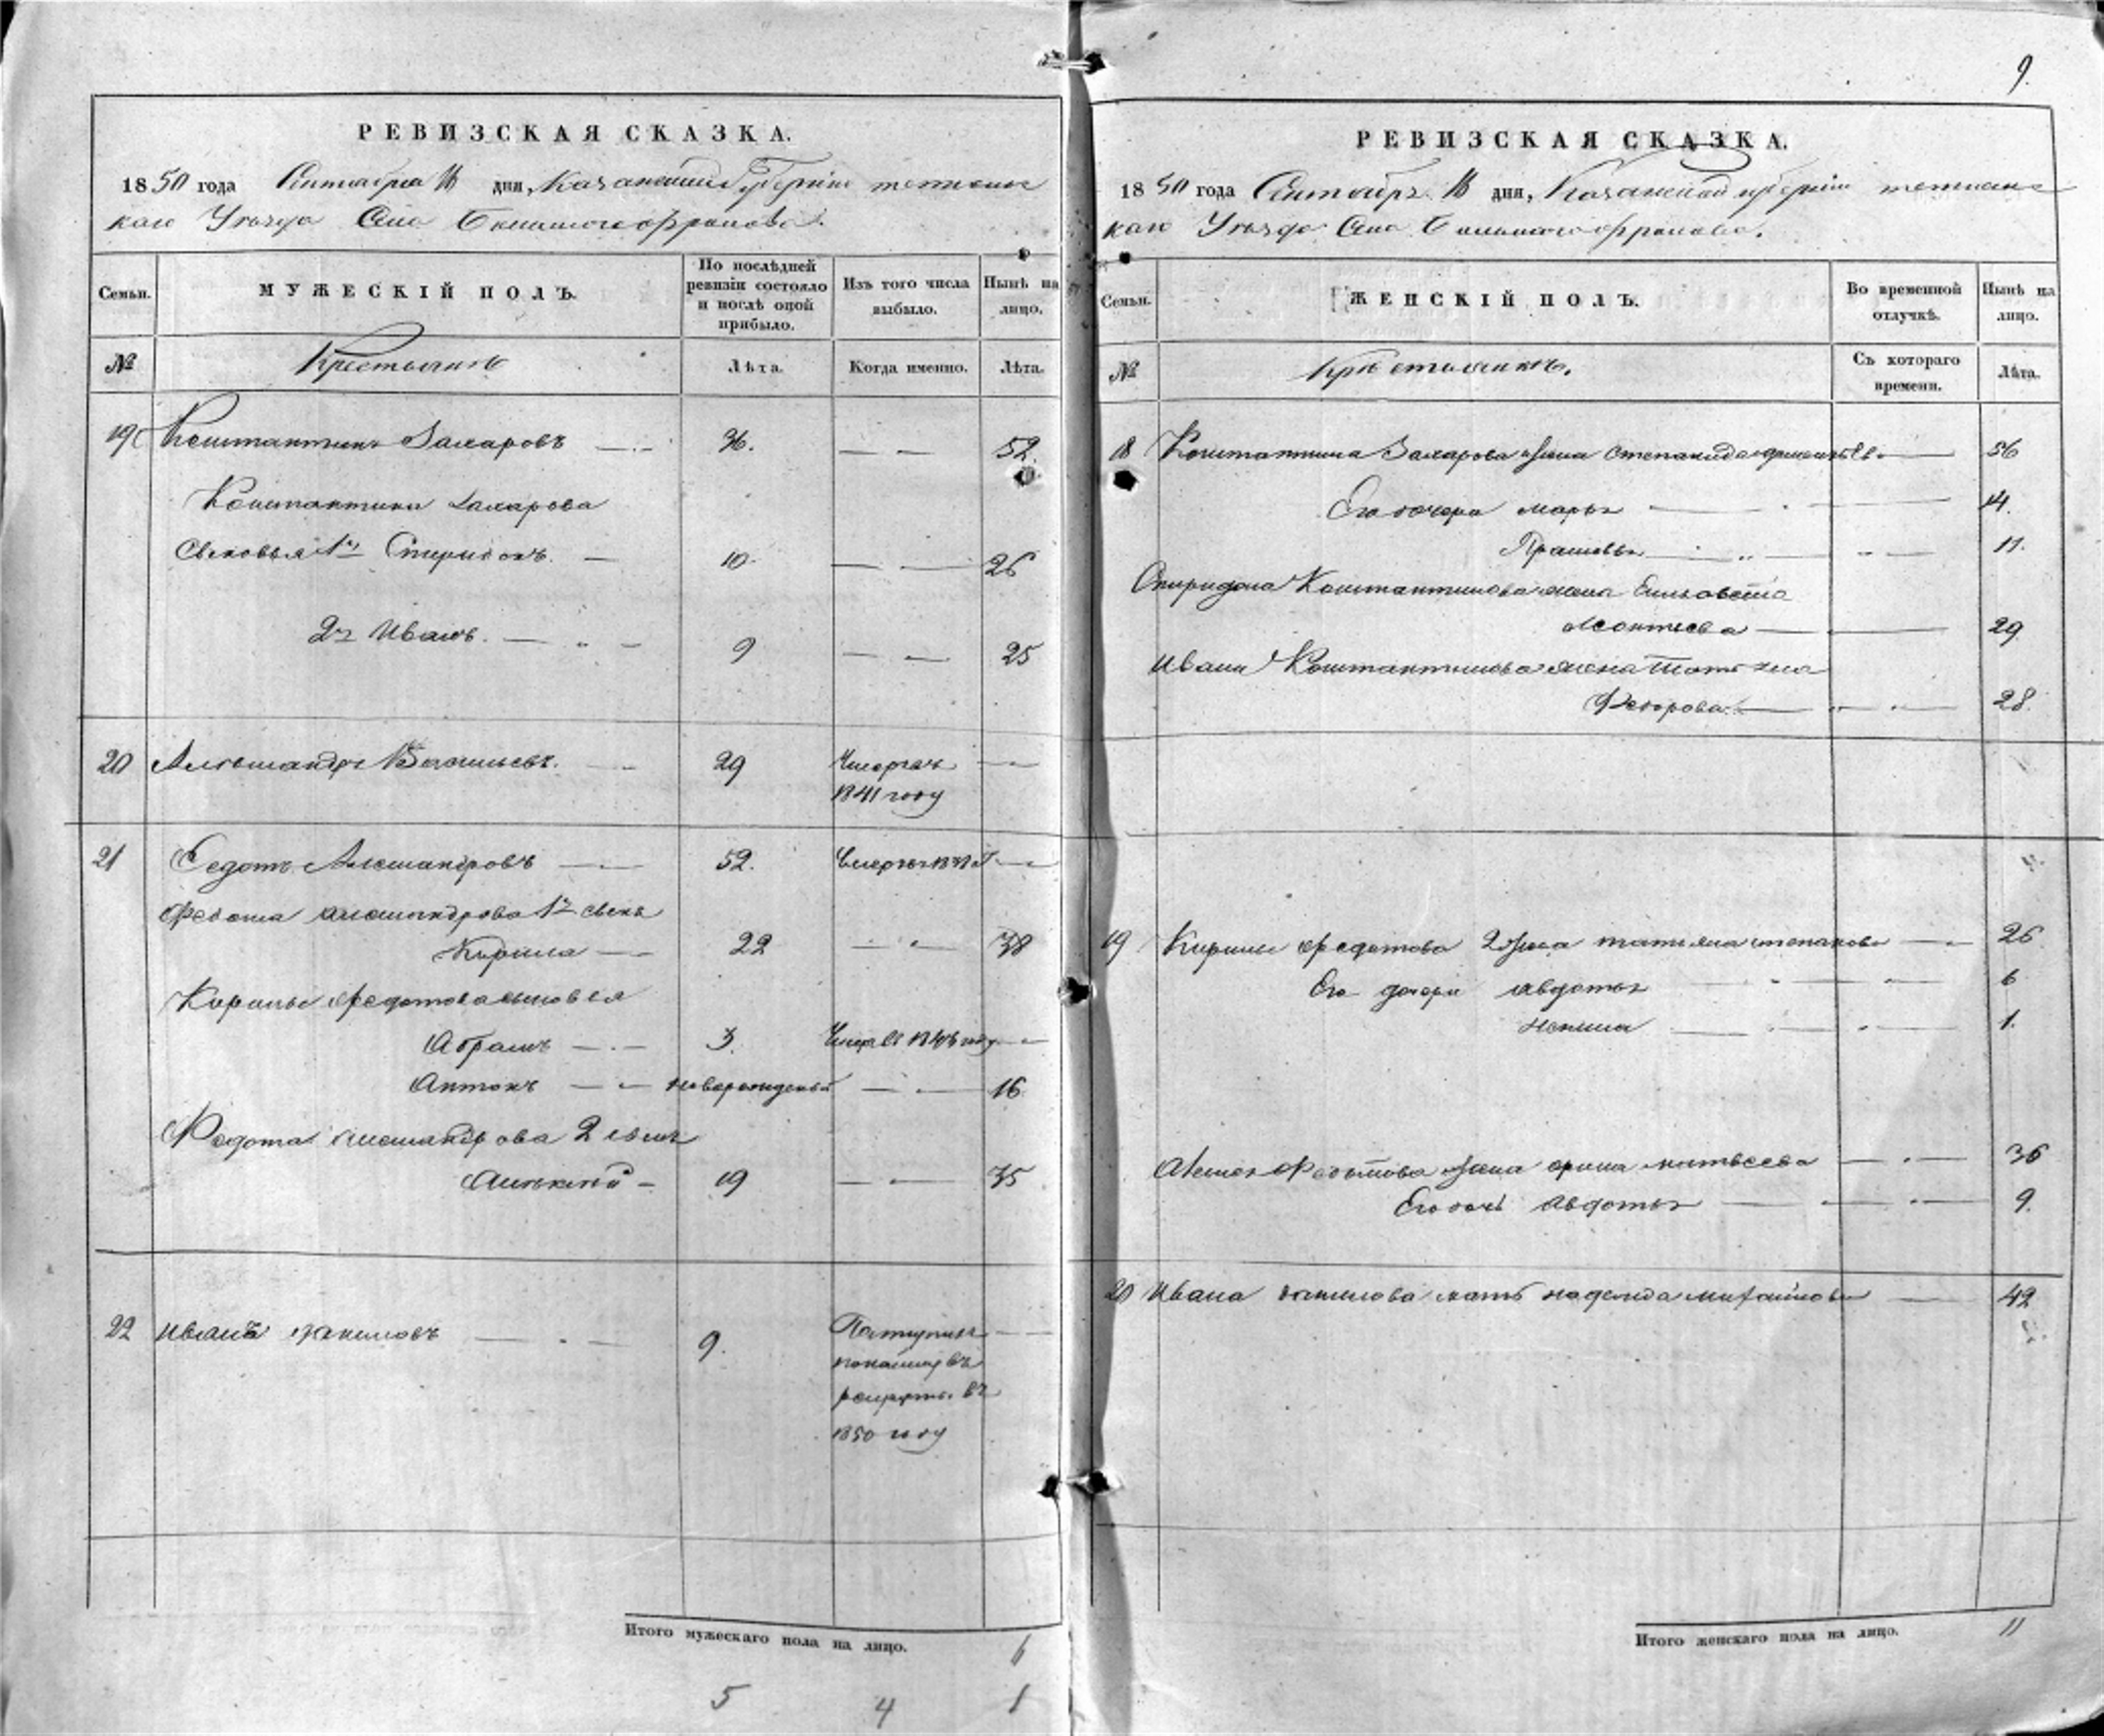 РЕВИЗСКАЯ СКАЗКА.
1850 года Сентября 16 дня, Казанской Губернiи тетюшс
каго Уѣзда Села
Семьи.
МУЖЕСКIЙ ПОЛЪ.
По послѣдней ревизiи состояло и послѣ оной прибыло.
Изъ того числа выбыло.
Нынѣ на лицо.
№
Крестьянъ
Лѣта.
Когда именно.
Лѣта.
19 Константинъ Захаровъ 36. 52
Константина Захарова
Сыновья 1й Спиридонъ. 10. 26
2й Иванъ. 9 25
20 Александръ Васильевъ. 29 Умеръ въ
1841 году
21 Федотъ Александровъ 52.
Федота Александрова 1й сынъ
Кирила 22 38
Кирилы Федотова сыновья
Абрамъ 3.
Антонъ новорожденый 16
Федота Александрова 2 сынъ
Алексѣй 19 35
22 Иванъ Даниловъ 9. Поступилъ
въ
рекруты въ
1850 году
Итого мужескаго пола на лицо. 6
5 4 1
9.
РЕВИЗСКАЯ СКАЗКА.
1850 года Сентября 16 дня, Казанской губернiи тетюшс
каго Уѣзда Села
Семьи.
ЖЕНСКIЙ ПОЛЪ.
Во временной отлучкѣ.
Нынѣ на лицо.
№
Крестьянкъ.
Съ котораго времени.
Лѣта.
18 Константина Захарова жена Степанида 56
Его дочери Марья 14.
Прасковья 11.
Спиридона Константинова жена Елизавета
Леонтьева 29
Ивана Константинова жена Татьяна
Федорова 28.
19 Кирилы Федотова 2 жена татьяна степанова 26
Его дочери Авдотья 6
1.
Алексея Федотова жена орина матвеева 36
Его дочь Авдотья 9.
20 Ивана Данилова мать надежда михайлова 42
Итого женскаго пола на лицо. 11